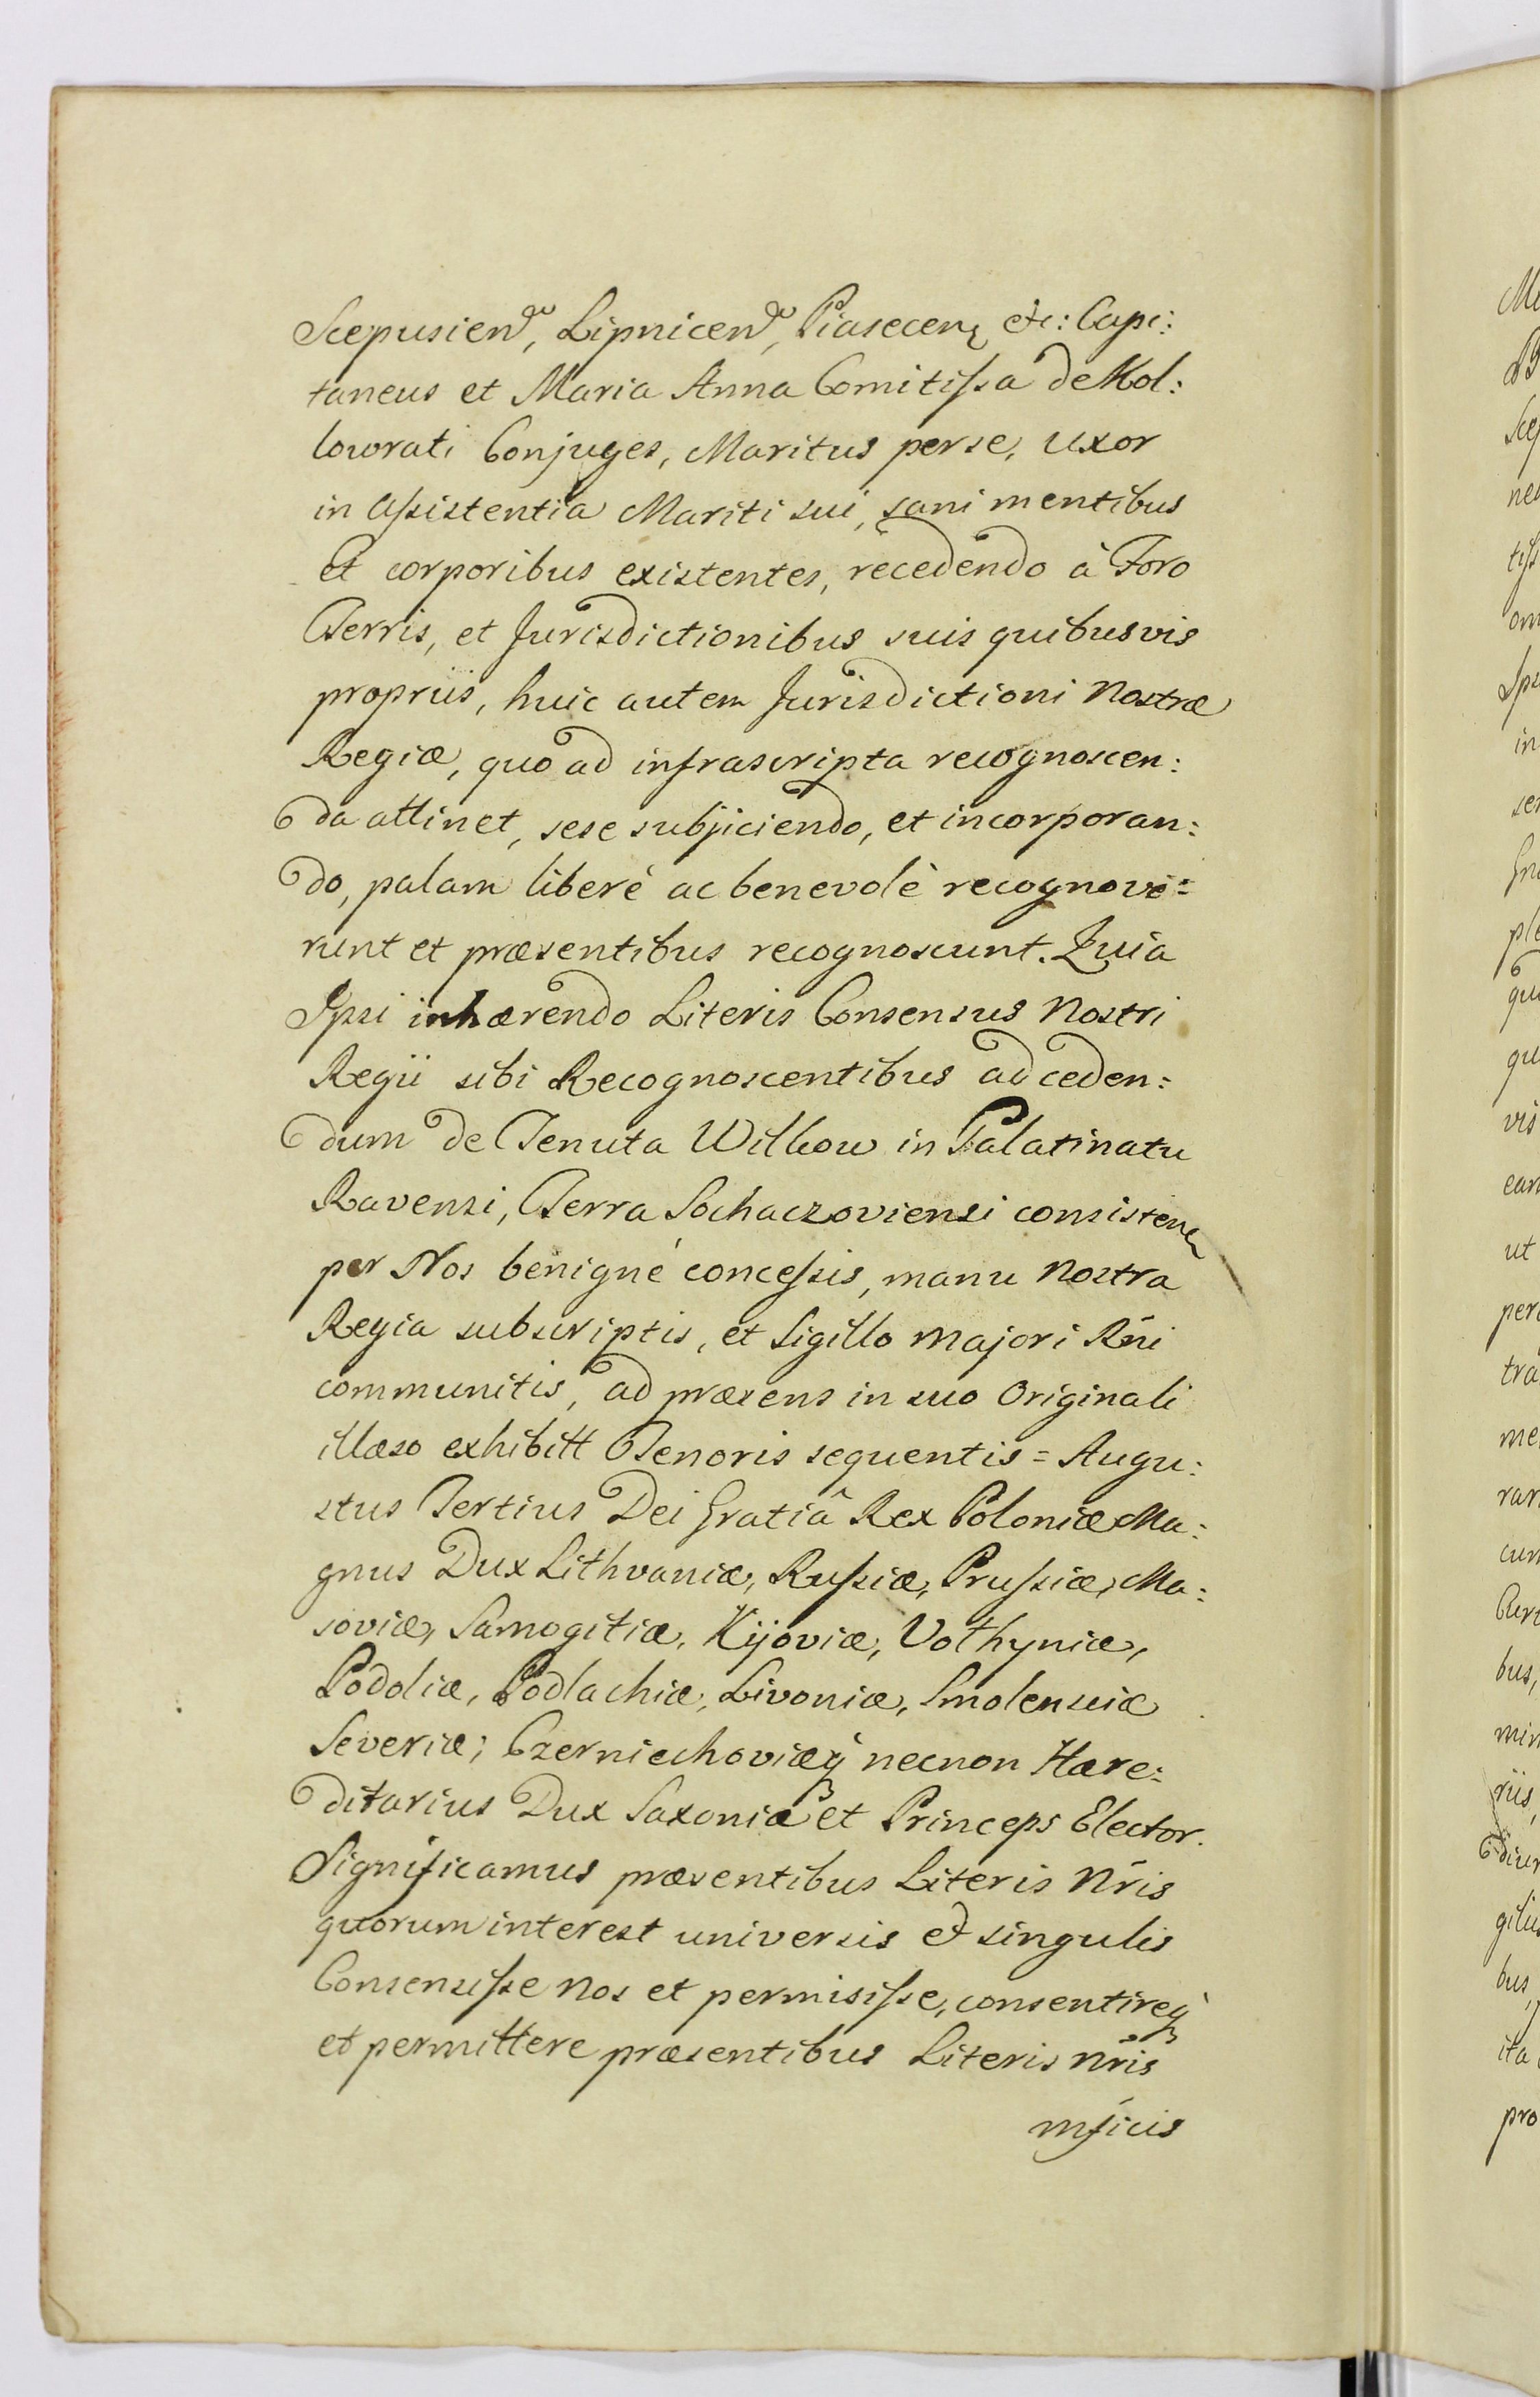 Scepusien, Lipnicen, Piasecen, etc: Capi:
taneus et Maria Anna Comitissa de Kol:
lowrati Conjuges, Maritus per se, Uxor
in Assistentia Mariti sui, sani mentibus
et corporibus existentes, recedendo à Foro
Terris, et Jurisdictionibus suis quibusvis
propriis, huic autem Jurisdictioni Nostræ
Regiæ, quo ad infrascripta recognoscen:
da attinet, sese subjiciendo, et incorporan:
do, palam liberè ac benevolè recognove=
runt et præsentibus recognoscunt. Quia
Ipsi inhærendo Literis Consensus Nostri
Regii sibi Recognoscentibus ad ceden:
dum de Tenuta Wilkow in Palatinatu
Ravensi, Terra Sochaczoviensi consisten
per Nos benignè concessis, manu Nostra
Regia subscriptis, et Sigillo Majori Rni
communitis, ad præsens in suo Originali
illæso exhibitt Tenoris sequentis = Augu:
stus Tertius Dei Gratiâ Rex Poloniæ Ma:
gnus Dux Lithvaniæ, Russiæ, Prussiæ, Ma:
soviæ, Samogitiæ, Kijoviæ, Volhyniæ,
Podoliæ, Podlachiæ, Livoniæ, Smolensciæ
Severiæ; Czerniechoviæq necnon Hære:
ditarius Dux Saxoniæ et Princeps Elector.
Significamus præsentibus Literis Nris
quorum interest universis et singulis
Consensisse Nos et permisisse, consentireq
et permittere præsentibus Literis Nris
mficis